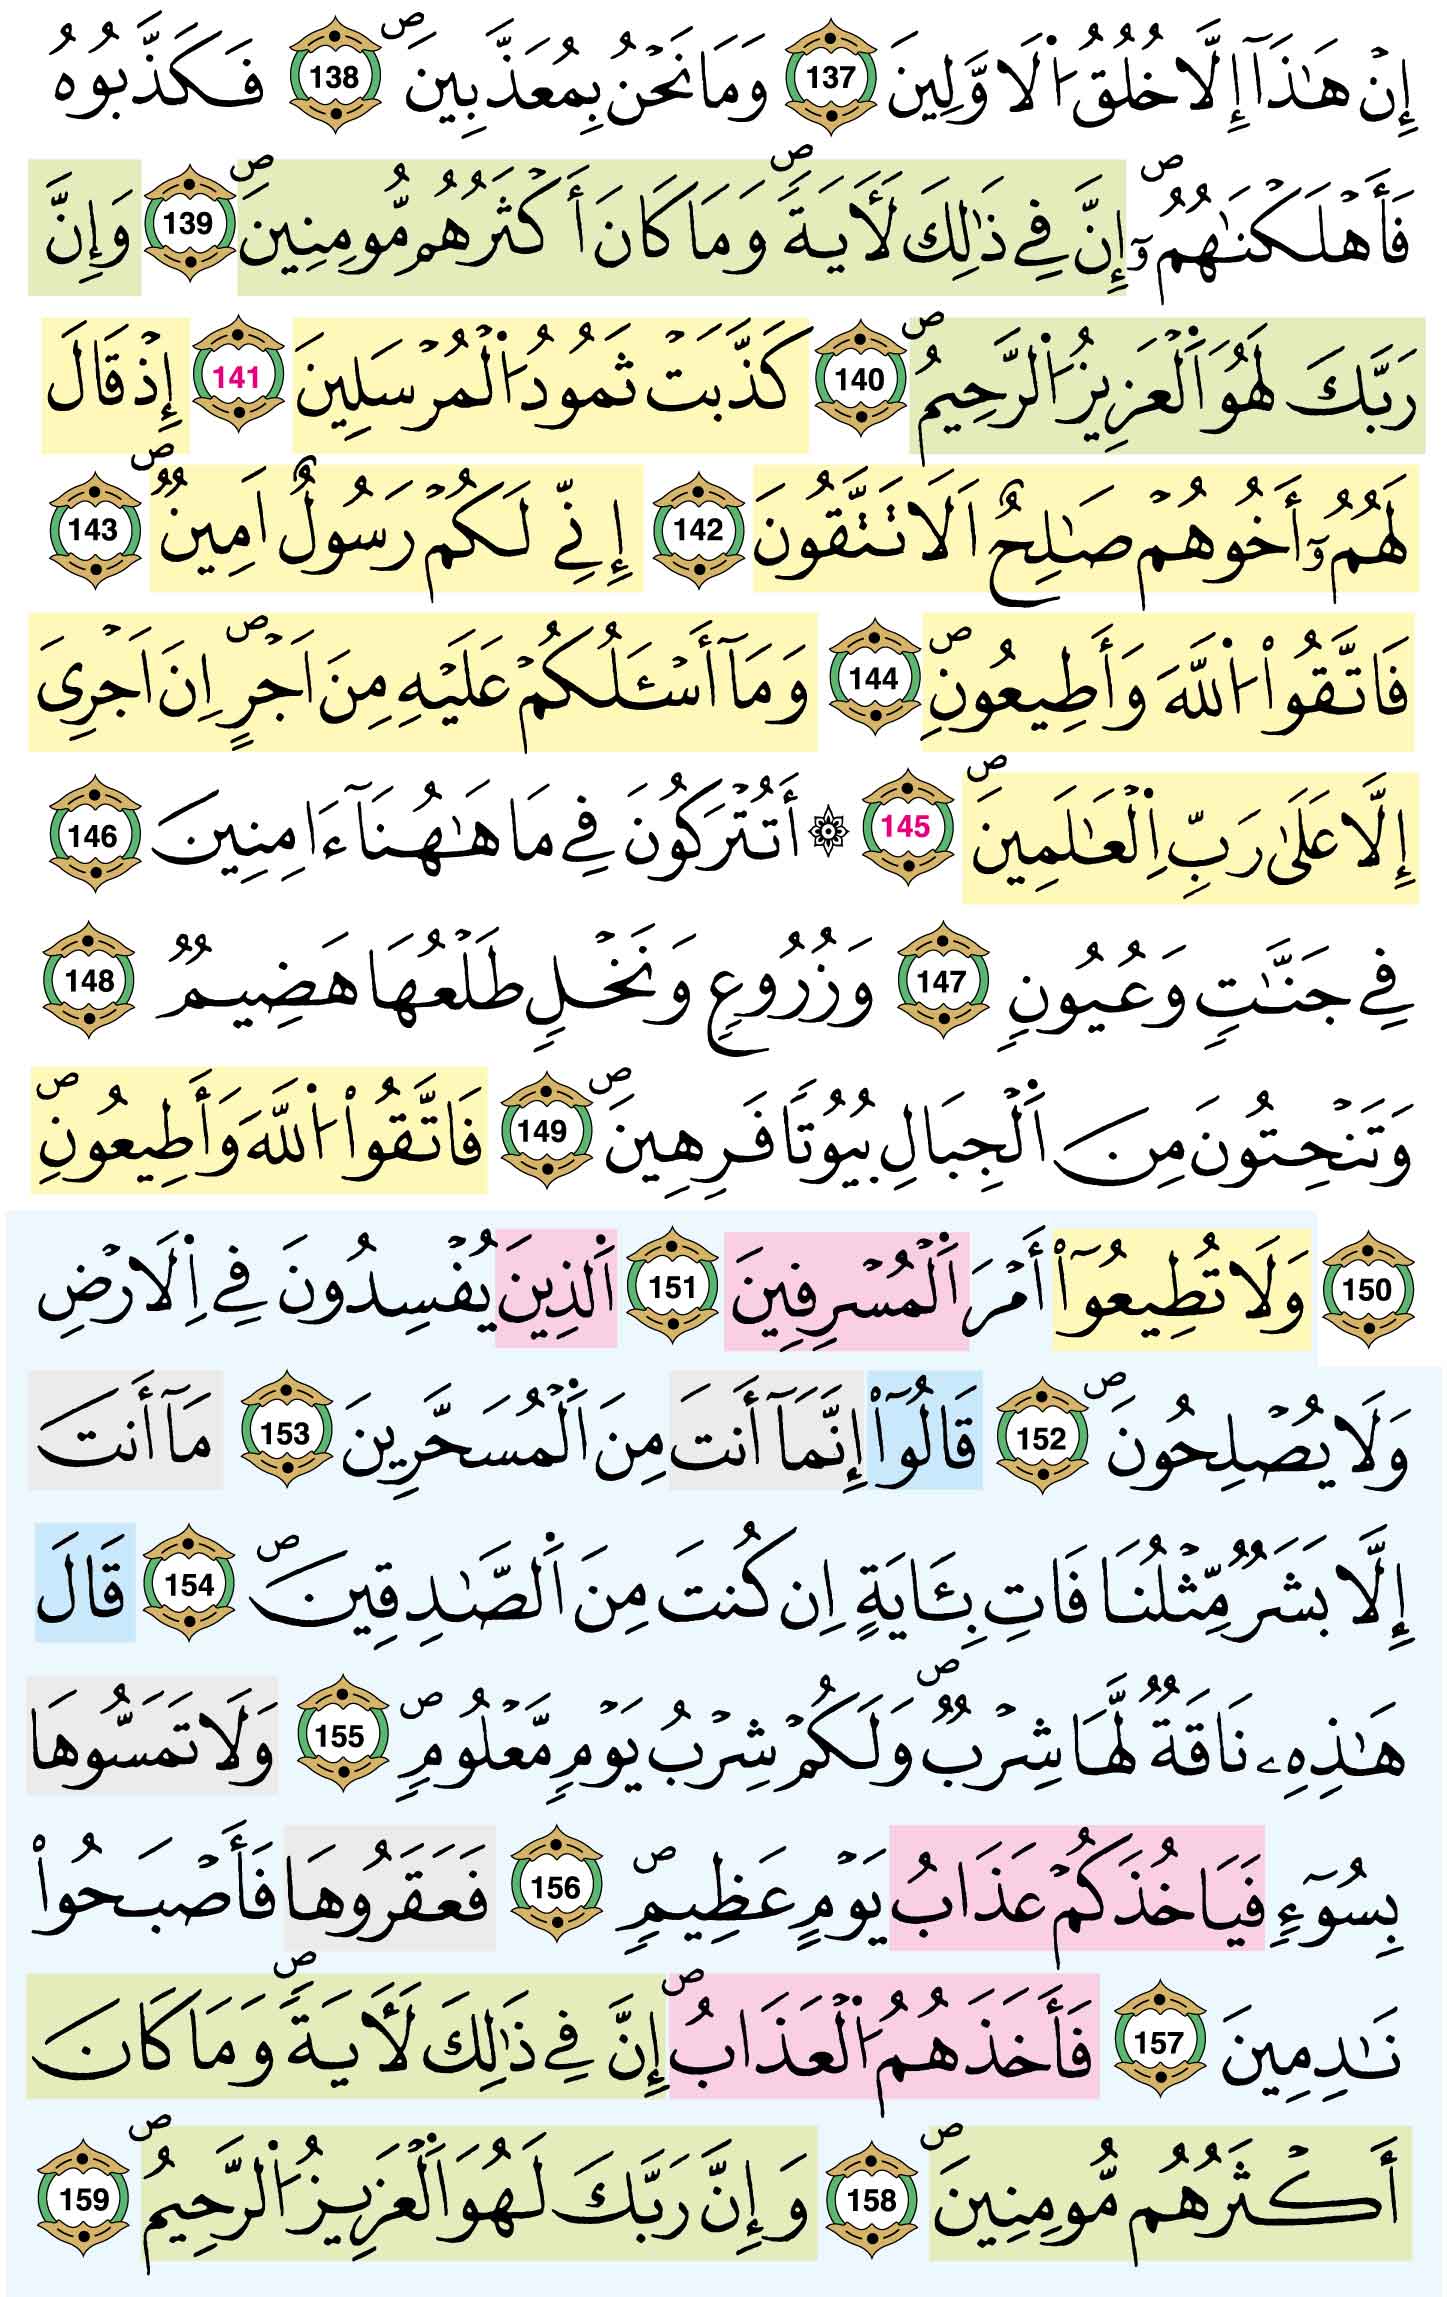 إِنْ هَٰذَآ إِلَّا خُلُقُ اُ۬لَاوَّلِينَ 137 وَمَا نَحْنُ بِمُعَذَّبِينَۖ 138 فَكَذَّبُوهُ
فَأَهْلَكْنَٰهُمُۥٓۖ إِنَّ فِے ذَٰلِكَ لَأٓيَةٗۖ وَمَا كَانَ أَكْثَرُهُم مُّومِنِينَۖ 139 وَإِنَّ
رَبَّكَ لَهُوَ اَ۬لْعَزِيزُ اُ۬لرَّحِيمُۖ 140 كَذَّبَتْ ثَمُودُ اُ۬لْمُرْسَلِينَ 141 إِذْ قَالَ
لَهُمُۥٓ أَخُوهُمْ صَٰلِحٌ اَلَا تَتَّقُونَ 142 إِنِّے لَكُمْ رَسُولٌ اَمِينٞۖ 143
فَاتَّقُواْ اُ۬للَّهَ وَأَطِيعُونِۖ 144 وَمَآ أَسْـَٔلُكُمْ عَلَيْهِ مِنَ اَجْرٍۖ اِنَ اَجْرِىَ
إِلَّا عَلَىٰ رَبِّ اِ۬لْعَٰلَمِينَۖ 145 ۞ أَتُتْرَكُونَ فِے مَا هَٰهُنَآ ءَامِنِينَ 146
فِے جَنَّٰتٖ وَعُيُونٖ 147 وَزُرُوعٖ وَنَخْلٖ طَلْعُهَا هَضِيمٞ 148
وَتَنْحِتُونَ مِنَ اَ۬لْجِبَالِ بُيُوتاٗ فَرِهِينَۖ 149 فَاتَّقُواْ اُ۬للَّهَ وَأَطِيعُونِۖ
150 وَلَا تُطِيعُوٓاْ أَمْرَ اَ۬لْمُسْرِفِينَ 151 اَ۬لذِينَ يُفْسِدُونَ فِے اِ۬لَارْضِ
وَلَا يُصْلِحُونَۖ 152 قَالُوٓاْ إِنَّمَآ أَنتَ مِنَ اَ۬لْمُسَحَّرِينَ 153 مَآ أَنتَ
إِلَّا بَشَرٞ مِّثْلُنَا فَاتِ بِـَٔايَةٍ اِن كُنتَ مِنَ اَ۬لصَّٰدِقِينَۖ 154 قَالَ
هَٰذِهِۦ نَاقَةٞ لَّهَا شِرْبٞۖ وَلَكُمْ شِرْبُ يَوْمٖ مَّعْلُومٖۖ 155 وَلَا تَمَسُّوهَا
بِسُوٓءٖ فَيَاخُذَكُمْ عَذَابُ يَوْمٍ عَظِيمٖۖ 156 فَعَقَرُوهَا فَأَصْبَحُواْ
نَٰدِمِينَ 157 فَأَخَذَهُمُ اُ۬لْعَذَابُۖ إِنَّ فِے ذَٰلِكَ لَأٓيَةٗۖ وَمَا كَانَ
أَكْثَرُهُم مُّومِنِينَۖ 158 وَإِنَّ رَبَّكَ لَهُوَ اَ۬لْعَزِيزُ اُ۬لرَّحِيمُۖ 159